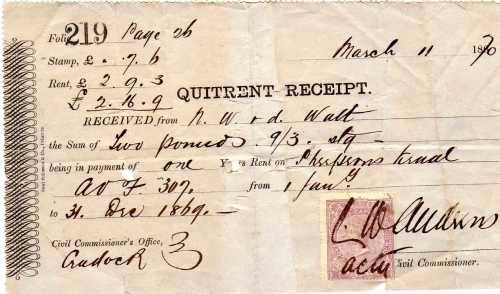 Folio 219 Page 26
March 11 1870
Stamp, £ . 7. 6
Rent, £ 2. 9. 3
£ 2. 16. 9
QUITRENT RECEIPT.
RECEIVED from N. W v d. Walt
the Sum of Two pounds 9/3 stg
being in payment of one Years Rent on
A o F 309. from 1 Jany
to 31. Dec 1869
Civil Commissioner's Office,
Cradock
Actg Civil Commissioner.